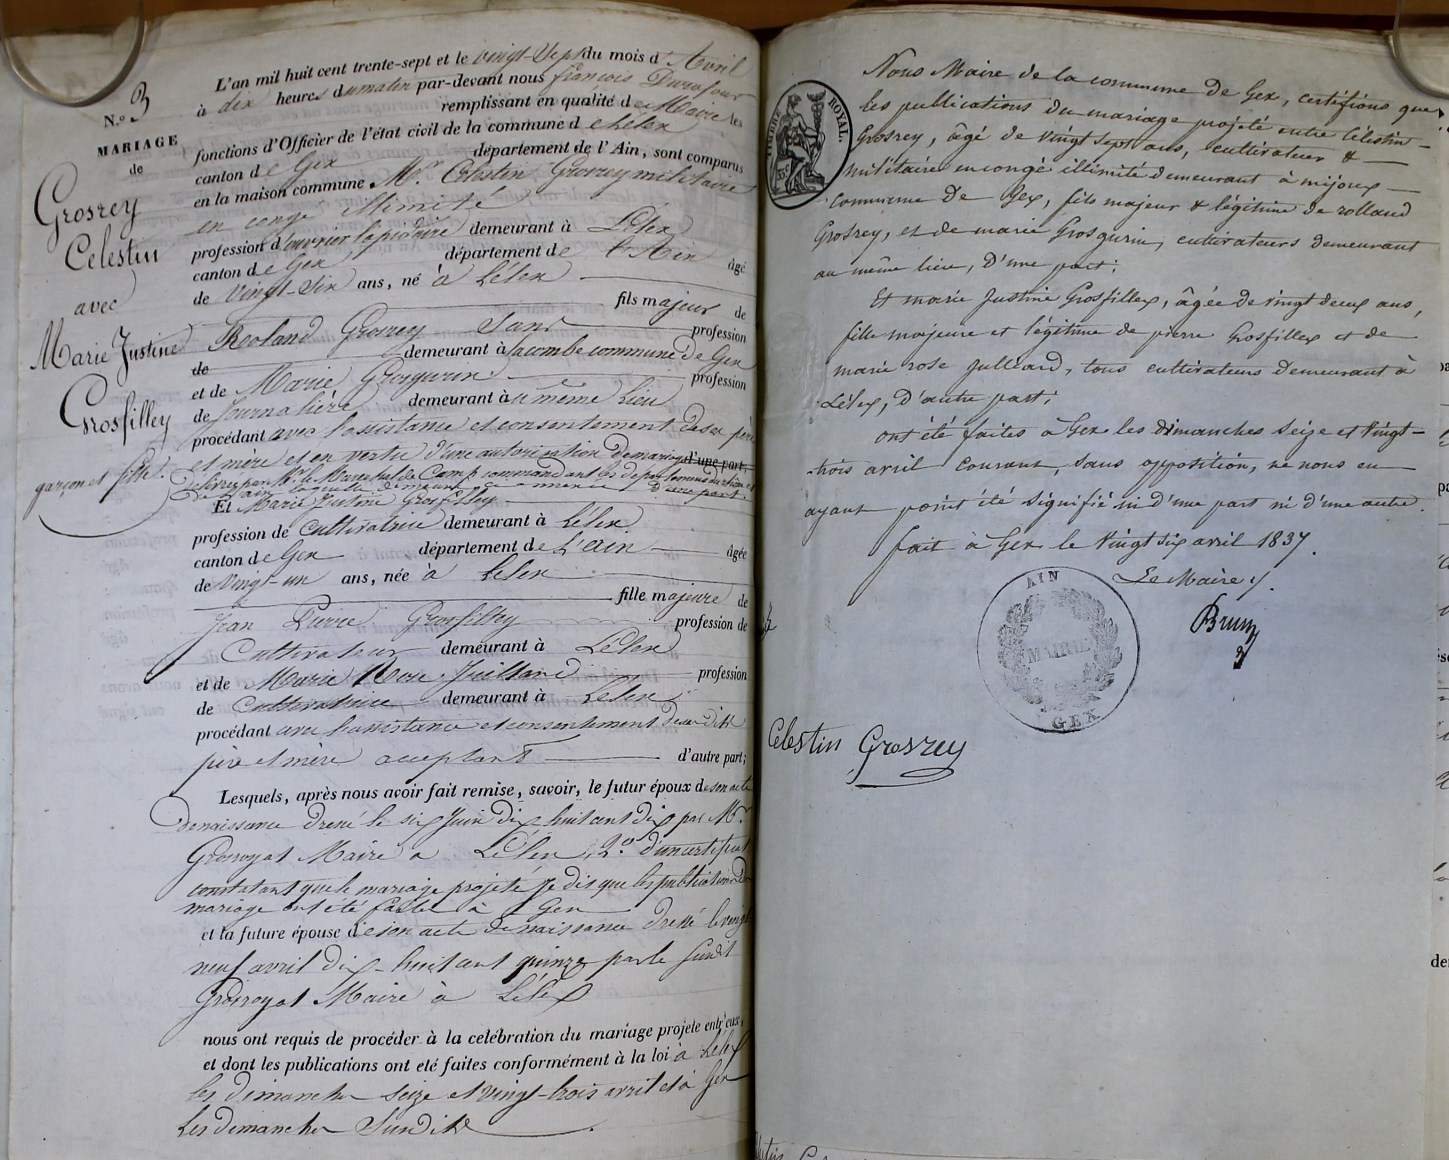 N.o 3
MARIAGE
de
Grosrey
Celestin
avec
Marie Justine
Grosfilley
garçon et fille.
L'an mil huit cent trente-sept et le vingt-sept du mois d'Avril
à dix heures du matin par-devant nous françois Durafour
remplissant en qualité de Maire les
fonctions d'Officier de l'état civil de la commune de Lélex
canton de Gex département de l'Ain, sont comparus
en la maison commune Mr. Celestin Grosrey militaire
en congé illimité
profession d'ouvrier lapidaire demeurant à Lélex
canton de Gex département de l'Ain âgé
de Vingt-Six ans, né à Lélex
fils majeur de
Roland Grosrey Sans profession
de demeurant à lacombe commune de Gex
et de Marie Grosgurin profession
de Journalière demeurant à u même lieu
procédant avec l'assistance et consentement de ses père
et mère et en vertu d'une autorisation de mariage d'une part;
délivrée par Mr. le Maréchal de Camp commandant les départements
de l'ain d'une part.
Et Marie Justine Grosfilley
profession de Cultivatrice demeurant à Lélex
canton de Gex département de L'ain âgée
de Vingt-un ans, née à Lelex
fille majeure de
Jean Pierre Grosfilley profession de
Cultivateur demeurant à Lélex
et de Marie Rose Juilland profession
de Cultivatrice demeurant à Lélex
procédant avec l'assistance et consentement de ses dits
père et mère acceptant d'autre part;
Lesquels, après nous avoir fait remise, savoir, le futur époux de son acte
de naissance dressé le six Juin dix huit cent dix par Mr.
Grosroyat Maire a Lélex, 2.o d'un certificat
constatant que le mariage projeté Je dis que les publications de
mariage ont été faites à Gex
et la future épouse de son acte de naissance dressé le vingt
neuf avril dix-huit cent quinze par le susdit
Grosroyat Maire à Lélex
nous ont requis de procéder à la celébration du mariage projete entr'eux,
et dont les publications ont eté faites conformément à la loi à Lélex
les dimanches seize et vingt-trois avril et à Gex
les dimanches Susdits
TIMBRE ROYAL.
Nous Maire de la commune de Gex, certifions que
les publications du mariage projeté entre Célestin
Grosrey, âgé de vingt sept ans, cultivateur &
militaire en congé illimité demeurant à mijoux
commune de Gex, fils majeur & légitime de rolland
Grosrey, et de marie Grosgurin, cultivateurs demeurant
au même lieu, D'une part;
Et marie Justine Grosfilley, âgée de vingt deux ans,
fille majeure et légitime de pierre Grosfilley et de
marie rose Julliard, tous cultivateurs demeurant à
Lélex, d'autre part;
ont été faites à Gex les dimanches Seize et Vingt-
trois avril courant, sans opposition, ne nous en
ayant point été signifié ni d'une part ni d'une autre.
fait à Gex le Vingt six avril 1837.
Le Maire
Brun
AIN
MAIRIE
GEX
Celestin Grosrey